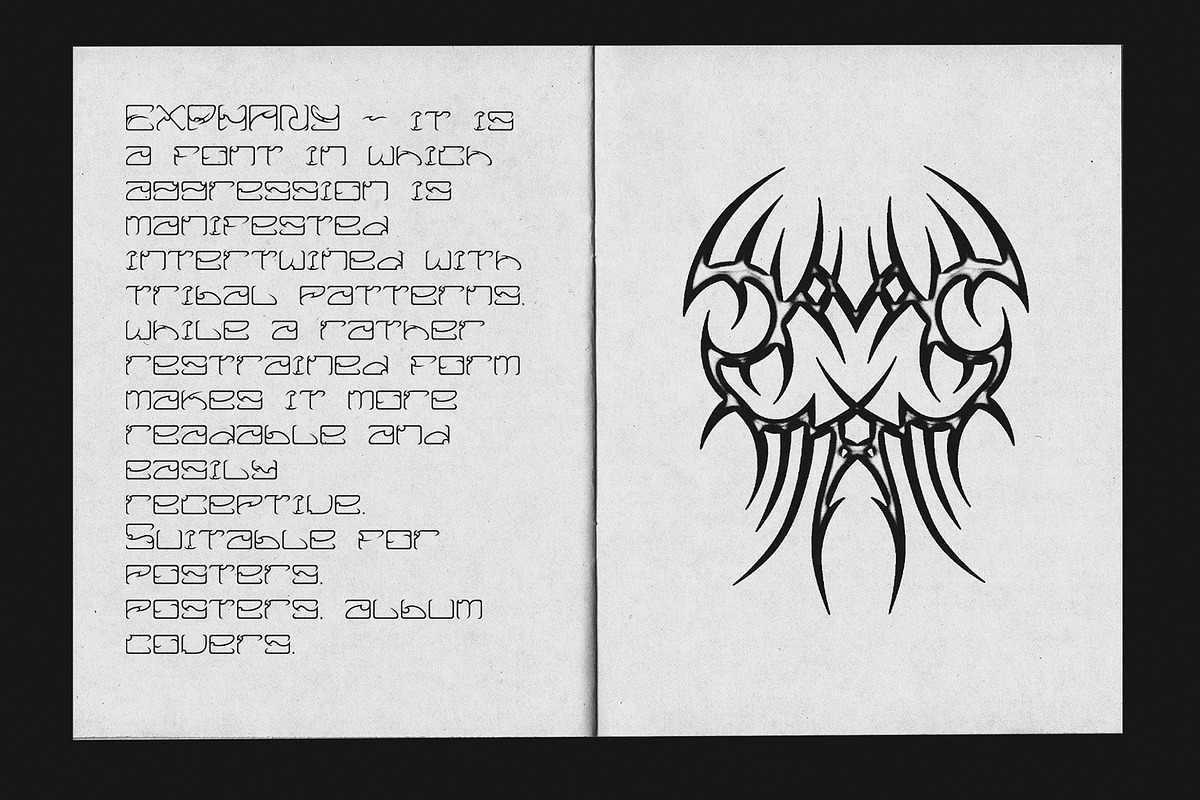 EXPHANY - it is
a font in which
aggression is
manifested
intertwined with
tribal patterns.
while a rather
restrained form
makes it more
readable and
easily
receptive.
Suitable for
posters.
posters. album
covers.